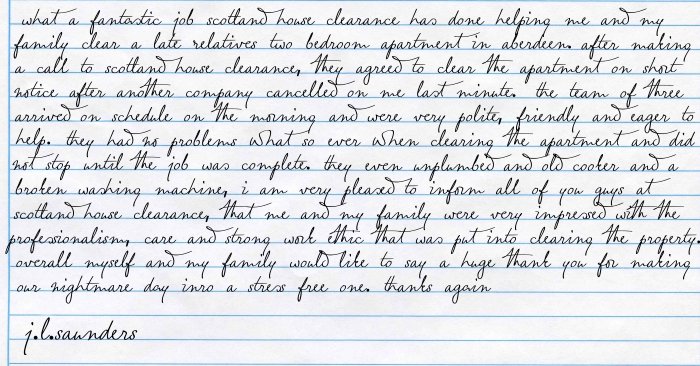 what a fantastic job scotland house clearance has done helping me and my
family clear a late relatives two bedroom apartment in aberdeen. after making
a call to scotland house clearance, they agreed to clear the apartment on short
notice after another company cancelled on me last minute. the team of three
arrived on schedule on the morning and were very polite, friendly and eager to
help. they had no problems what so ever when clearing the apartment and did
not stop until the job was complete. they even unplumbed and old cooker and a
broken washing machine, i am very pleased to inform all of you guys at
scotland house clearance, that me and my family were very impressed with the
professionalism, care and strong work ethic that was put into clearing the property.
overall myself and my family would like to say a huge thank you for making
our nightmare day inro a stress free one. thanks again
j.l.saunders